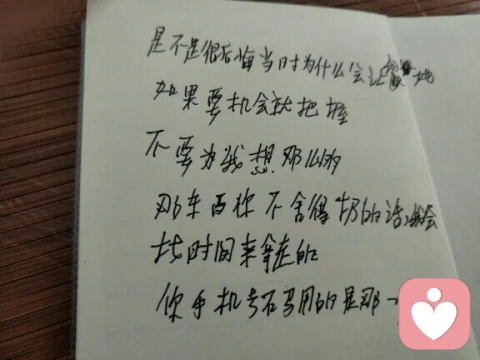 是不是很后悔当时为什么会让她
如果要机会就把握
不要为我想那么多
那车西你不舍得扔的话,我会
找时间来拿走的
你手机专不写用的是那一